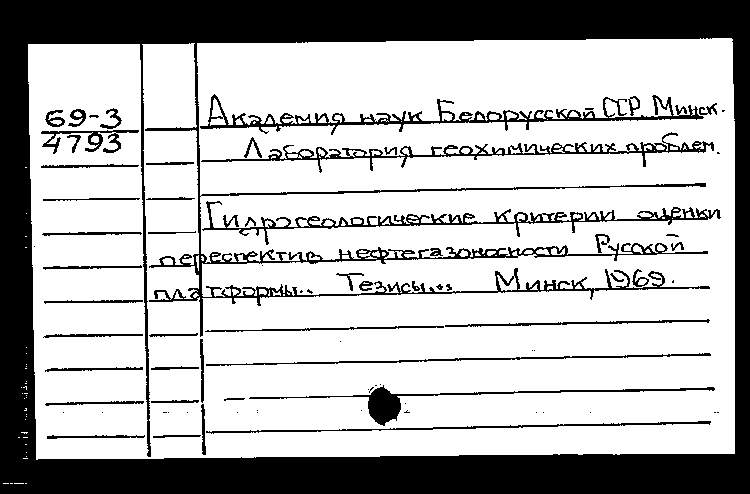 69-3
4793
Академия наук Белорусской ССР. Минск.
Лаборатория геохимических проблем.
Гидрогеологические критерии оценки
переспектив нефтегазоносности Русской
платформы.. Тезисы... Минск, 1969.